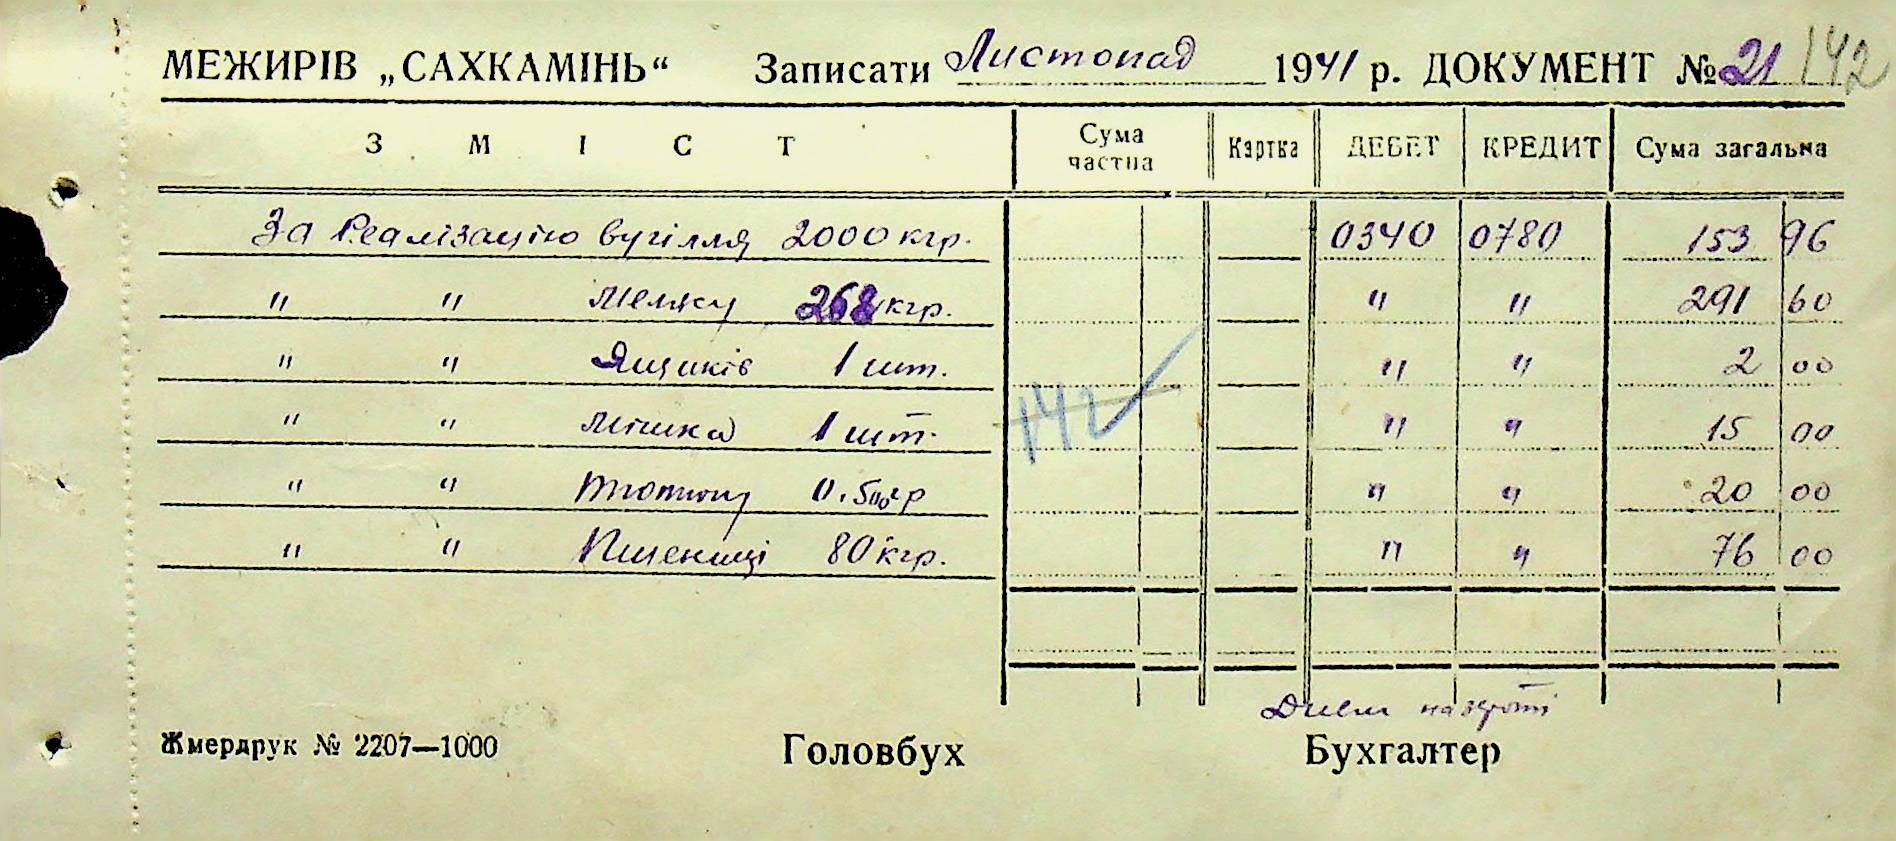 МЕЖИРІВ „САХКАМІНЬ“ Записати Листопад 1941 р. ДОКУМЕНТ № 21 142
З М І С Т Сума частна Картка ДЕБЕТ КРЕДИТ Сума загальна
За Реалізацію вугілля 2000 кгр. 0340 0780 153 96
" " 268 кгр. " " 291 60
" " Ящиків 1 шт. " " 2 00
" " мішка 1 шт. " " 15 00
142
" " тютюну 0.500 гр " " 20 00
" " Пшениці 80 кгр. " " 76 00
Диви на звороті
Жмердрук № 2207—1000 Головбух Бухгалтер